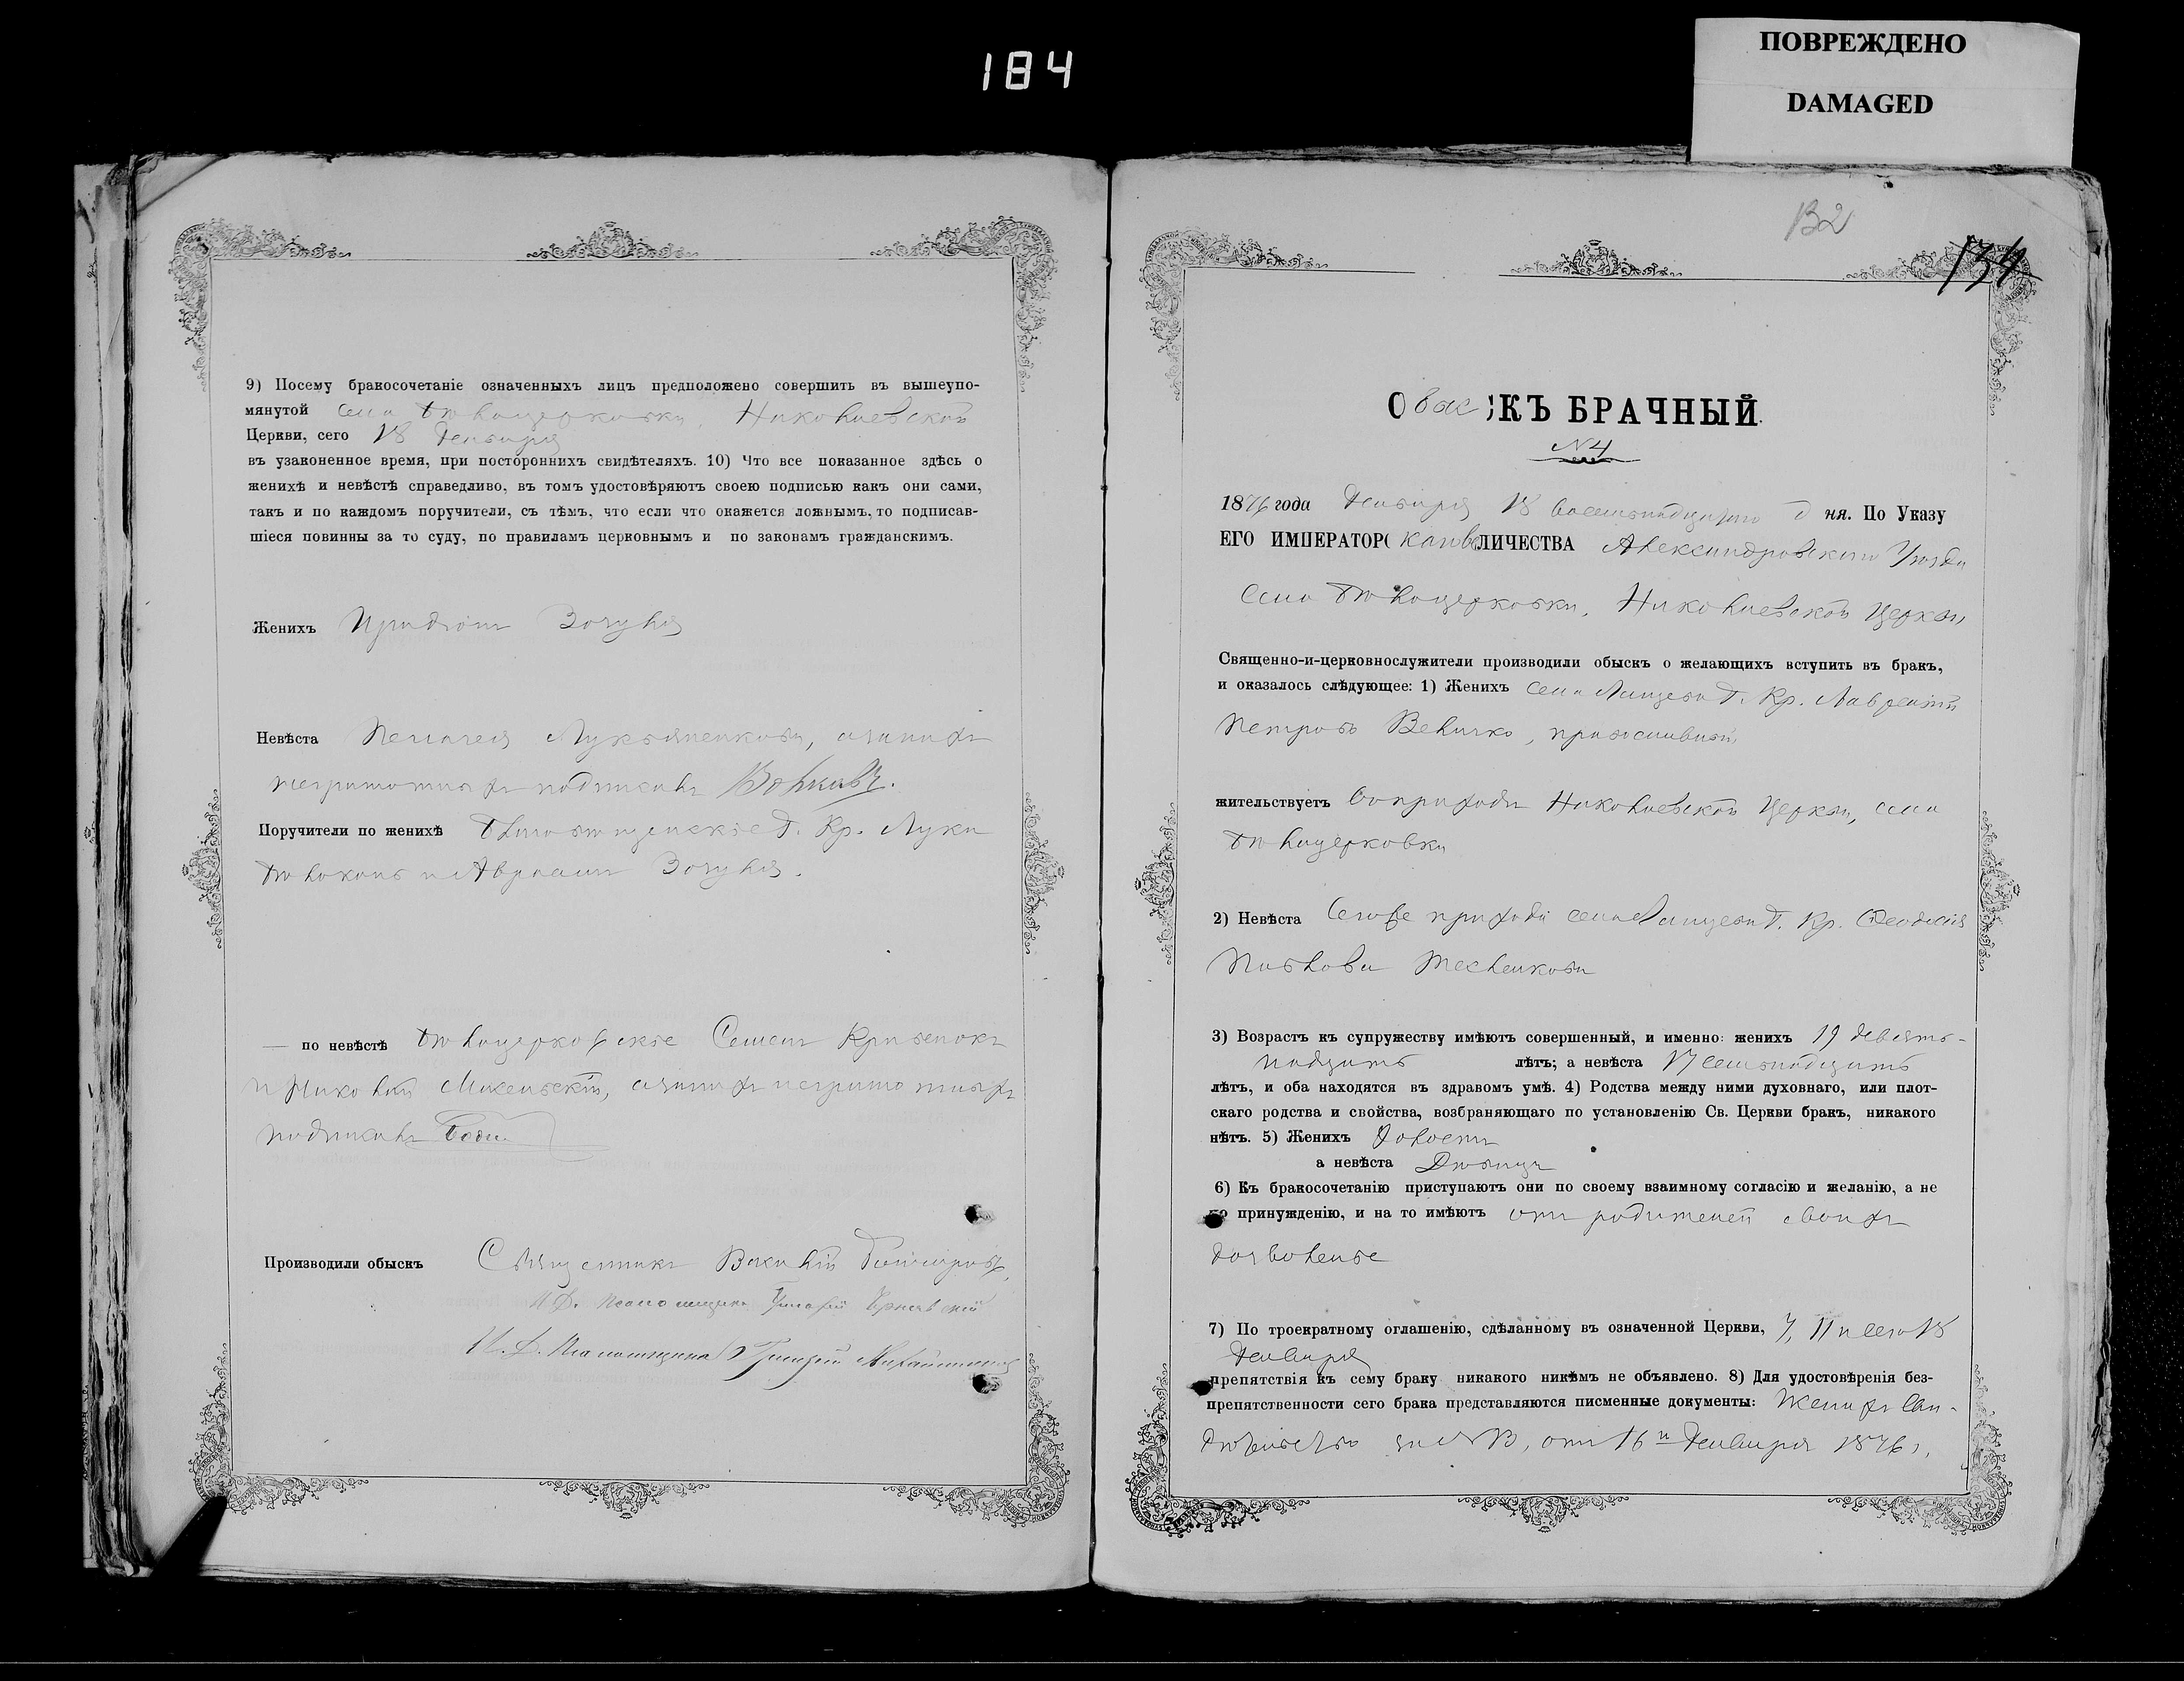 184
ПОВРЕЖДЕНО
DAMAGED
9) Посему бракосочетаніе означенныхъ лицъ предположено совершить въ вышеупо-
мянутой села Бѣлоцерковки, Николаевской
Церкви, сего 18 Декабря
въ узаконенное время, при постороннихъ свидѣтеляхъ. 10) Что все показанное здѣсь о
женихѣ и невѣстѣ справедливо, въ томъ удостовѣряютъ своею подписью какъ они сами,
такъ и по каждомъ поручители, съ тѣмъ, что если что окажется ложнымъ, то подписав-
шіеся повинны за то суду, по правиламъ церковнымъ и по законамъ гражданскимъ.
Женихъ Зозуля
Невѣста Пелагея Лукьяненкова, а за нихъ
неграмотныхъ подписалъ
Поручители по женихѣ Кр. Лука
и Авраамъ Зозуля.
— по невѣстѣ Бѣлоцерковскіе Семенъ
и Николай а за нихъ неграмотныхъ
подписалъ
Производили обыскъ Священникъ Василій
И. Д. Псаломщика
И. Д. Псаломщика Григорій
132
134
Обыскъ БРАЧНЫЙ.
№ 4
1876 года Декабря 18 восемьнадцатаго дня. По Указу
ЕГО ИМПЕРАТОРСкаго ВеЛИЧЕСТВА Александровскаго Уѣзда
села Бѣлоцерковки, Николаевской Церкви
Священно-и-церковнослужители производили обыскъ о желающихъ вступить въ бракъ,
и оказалось слѣдующее: 1) Женихъ села Кр. Лаврентій
Петровъ Величко, православный
жительствуетъ въ приходѣ Николаевской Церкви, села
Бѣлоцерковки
2) Невѣста сего же прихода села Кр. Феодосія
Павлова
3) Возрастъ къ супружеству имѣютъ совершенный, и именно: женихъ 19 девять-
надцать лѣтъ; а невѣста 17 семьнадцать
лѣтъ, и оба находятся въ здравомъ умѣ. 4) Родства между ними духовнаго, или плот-
скаго родства и свойства, возбраняющаго по установленію Св. Церкви бракъ, никакого
нѣтъ. 5) Женихъ Холостъ
а невѣста Дѣвица
6) Къ бракосочетанію приступаютъ они по своему взаимному согласію и желанію, а не
по принужденію, и на то имѣютъ отъ родителей своихъ
дозволеніе
7) По троекратному оглашенію, сдѣланному въ означенной Церкви, 7, 11 и сего 18
Декабря
препятствія къ сему браку никакого никѣмъ не объявлено. 8) Для удостовѣренія без-
препятственности сего брака представляются писменные документы: Жениха сви-
дѣтельство за № отъ 16 Декабря 1876 г.